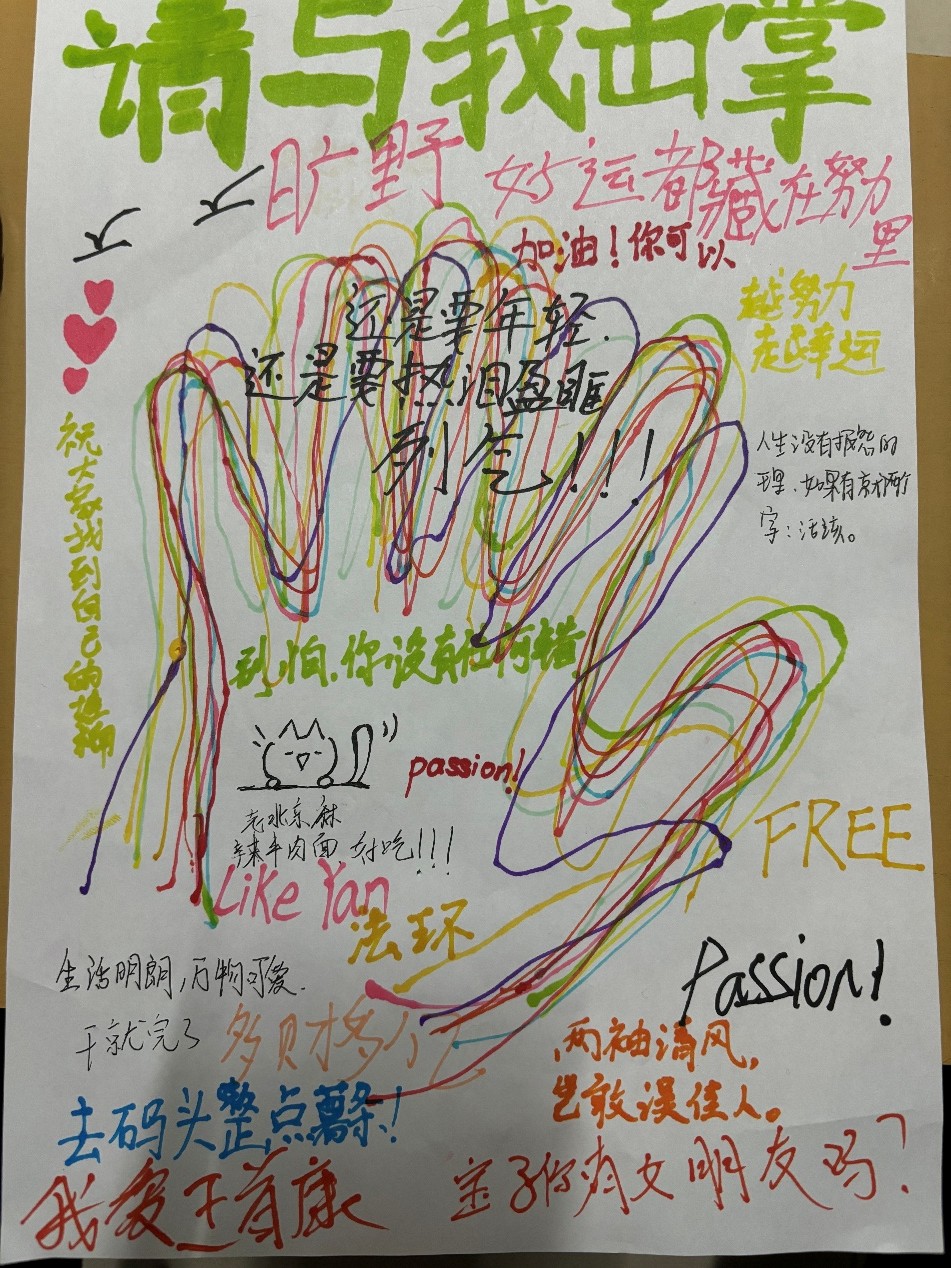 请与我击掌
旷野
好运都藏在努力
里
加油！你可以
还是要年轻.
还是要热泪盈眶
到气!!!
越努力
走幸运
祝大家找到自己的热柳
人生没有报怨的
理.如果有京就两个
字：活该。
到怕.你没有任何错
passion!
老北京麻
辣牛肉面,好吃!!!
Like Yan
法环
FREE
生活明朗,万物可爱.
干就完了
Passion!
多财多个
两袖清风,
岂敢误佳人。
去码头整点薯条!
我爱王首康
宝子你有女朋友吗?